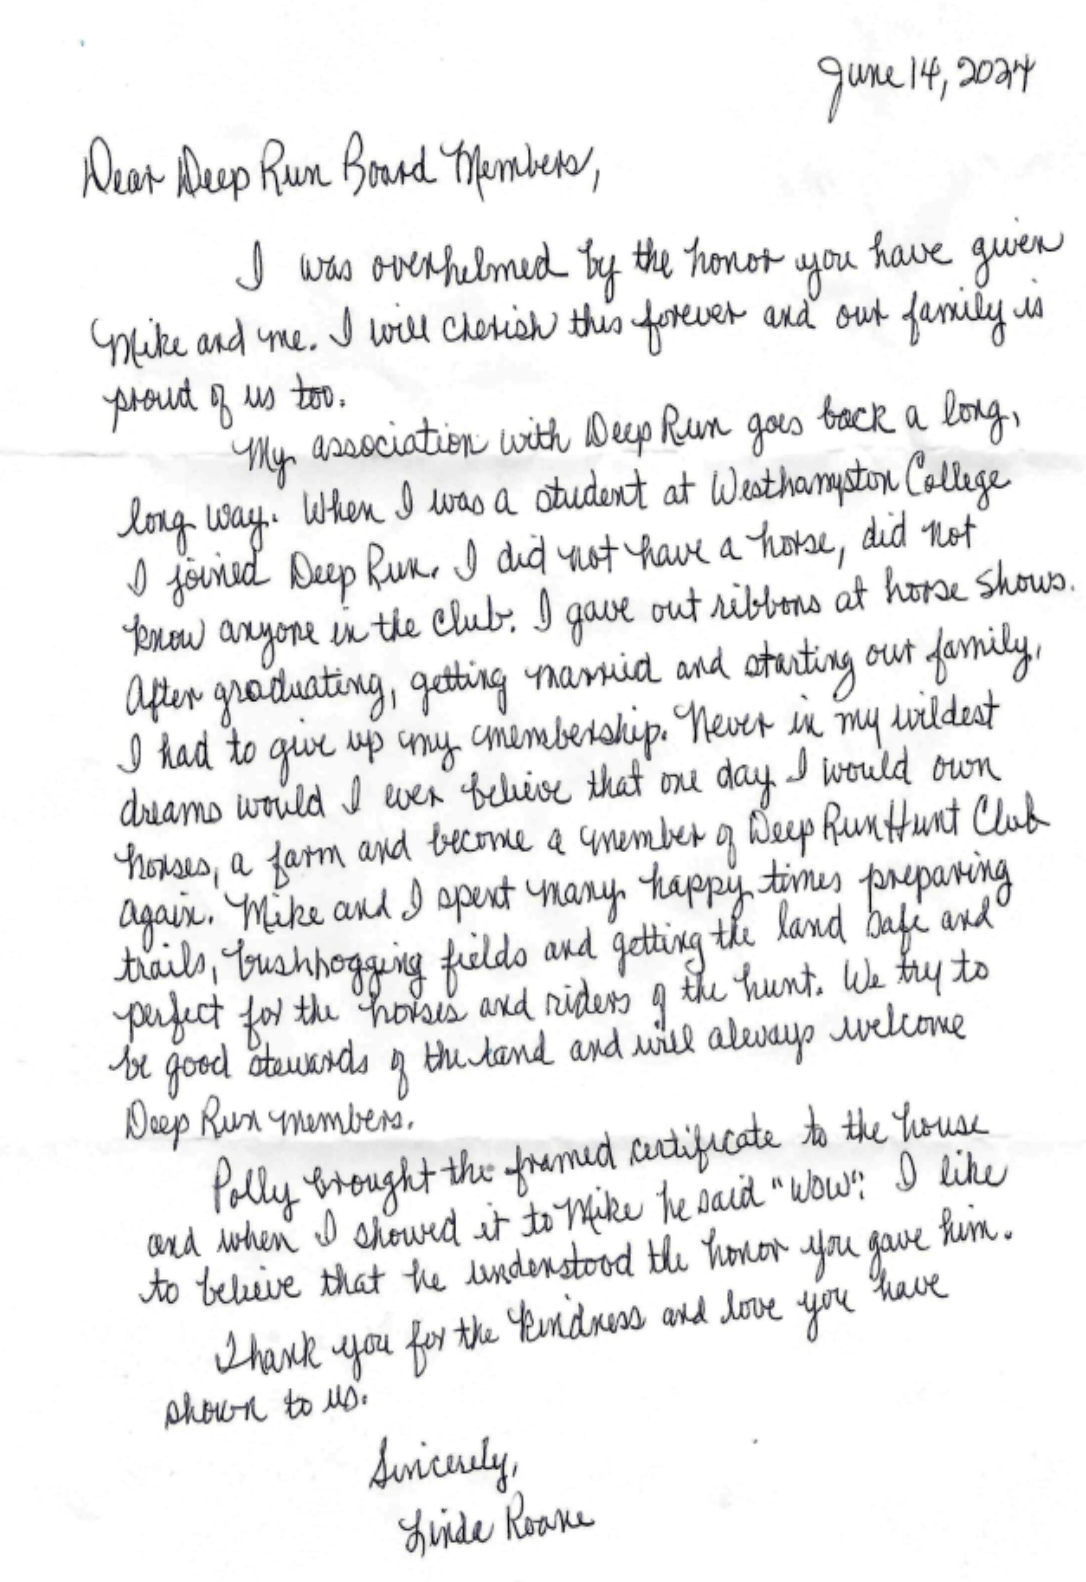 June 14, 2024
Dear Deep Run Board Members,
I was overhelmed by the honor you have given
Mike and me. I will cherish this forever and our family is
proud of us too.
My association with Deep Run goes back a long,
long way. When I was a student at Westhampton College
I joined Deep Run. I did not have a horse, did not
know anyone in the club. I gave out ribbons at horse shows.
After graduating, getting married and starting our family,
I had to give up my membership. Never in my wildest
dreams would I ever believe that one day I would own
horses, a farm and become a member of Deep Run Hunt Club
again. Mike and I spent many happy times preparing
trails, bushhogging fields and getting the land safe and
perfect for the horses and riders of the hunt. We try to
be good stewards of the land and will always welcome
Deep Run members.
Polly brought the framed certificate to the house
and when I showed it to Mike he said "Wow". I like
to believe that he understood the honor you gave him.
Thank you for the kindness and love you have
shown to us.
Sincerely,
Linda Roane